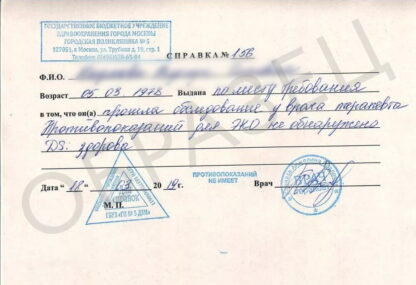 ГОСУДАРСТВЕННОЕ БЮДЖЕТНОЕ УЧРЕЖДЕНИЕ
ЗДРАВООХРАНЕНИЯ ГОРОДА МОСКВЫ
ГОРОДСКАЯ ПОЛИКЛИНИКА № 5
127051, г. Москва, ул. Трубная д. 19, стр. 1
СПРАВКА № 15В
Ф.И.О.
Возраст 05 03 1978 Выдана по месту требования
в том, что он(а) прошла обследование у врача терапевта
Противопоказаний для ЭКО не обнаружено
DS: здорова
ПРОТИВОПОКАЗАНИЙ
НЕ ИМЕЕТ
Дата " 18 " 03 20 г. Врач
М. П.
ВРАЧ
ОБРАЗЕЦ